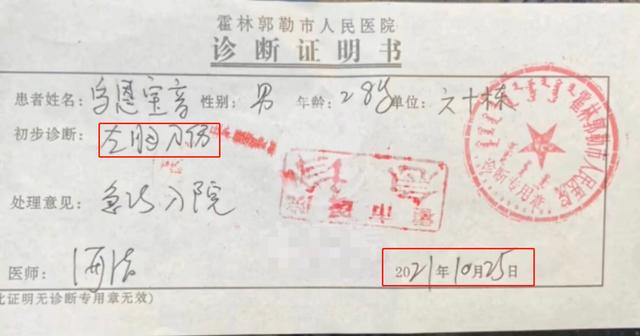 霍林郭勒市人民医院
诊断证明书
患者姓名: 乌恩宝音 性别: 男 年龄: 28岁 单位: 六十栋
初步诊断: 左胸刀伤
处理意见: 急诊入院
医师:
2021年10月25日
此证明无诊断专用章无效)
霍林郭勒市人民医院
诊断专用章